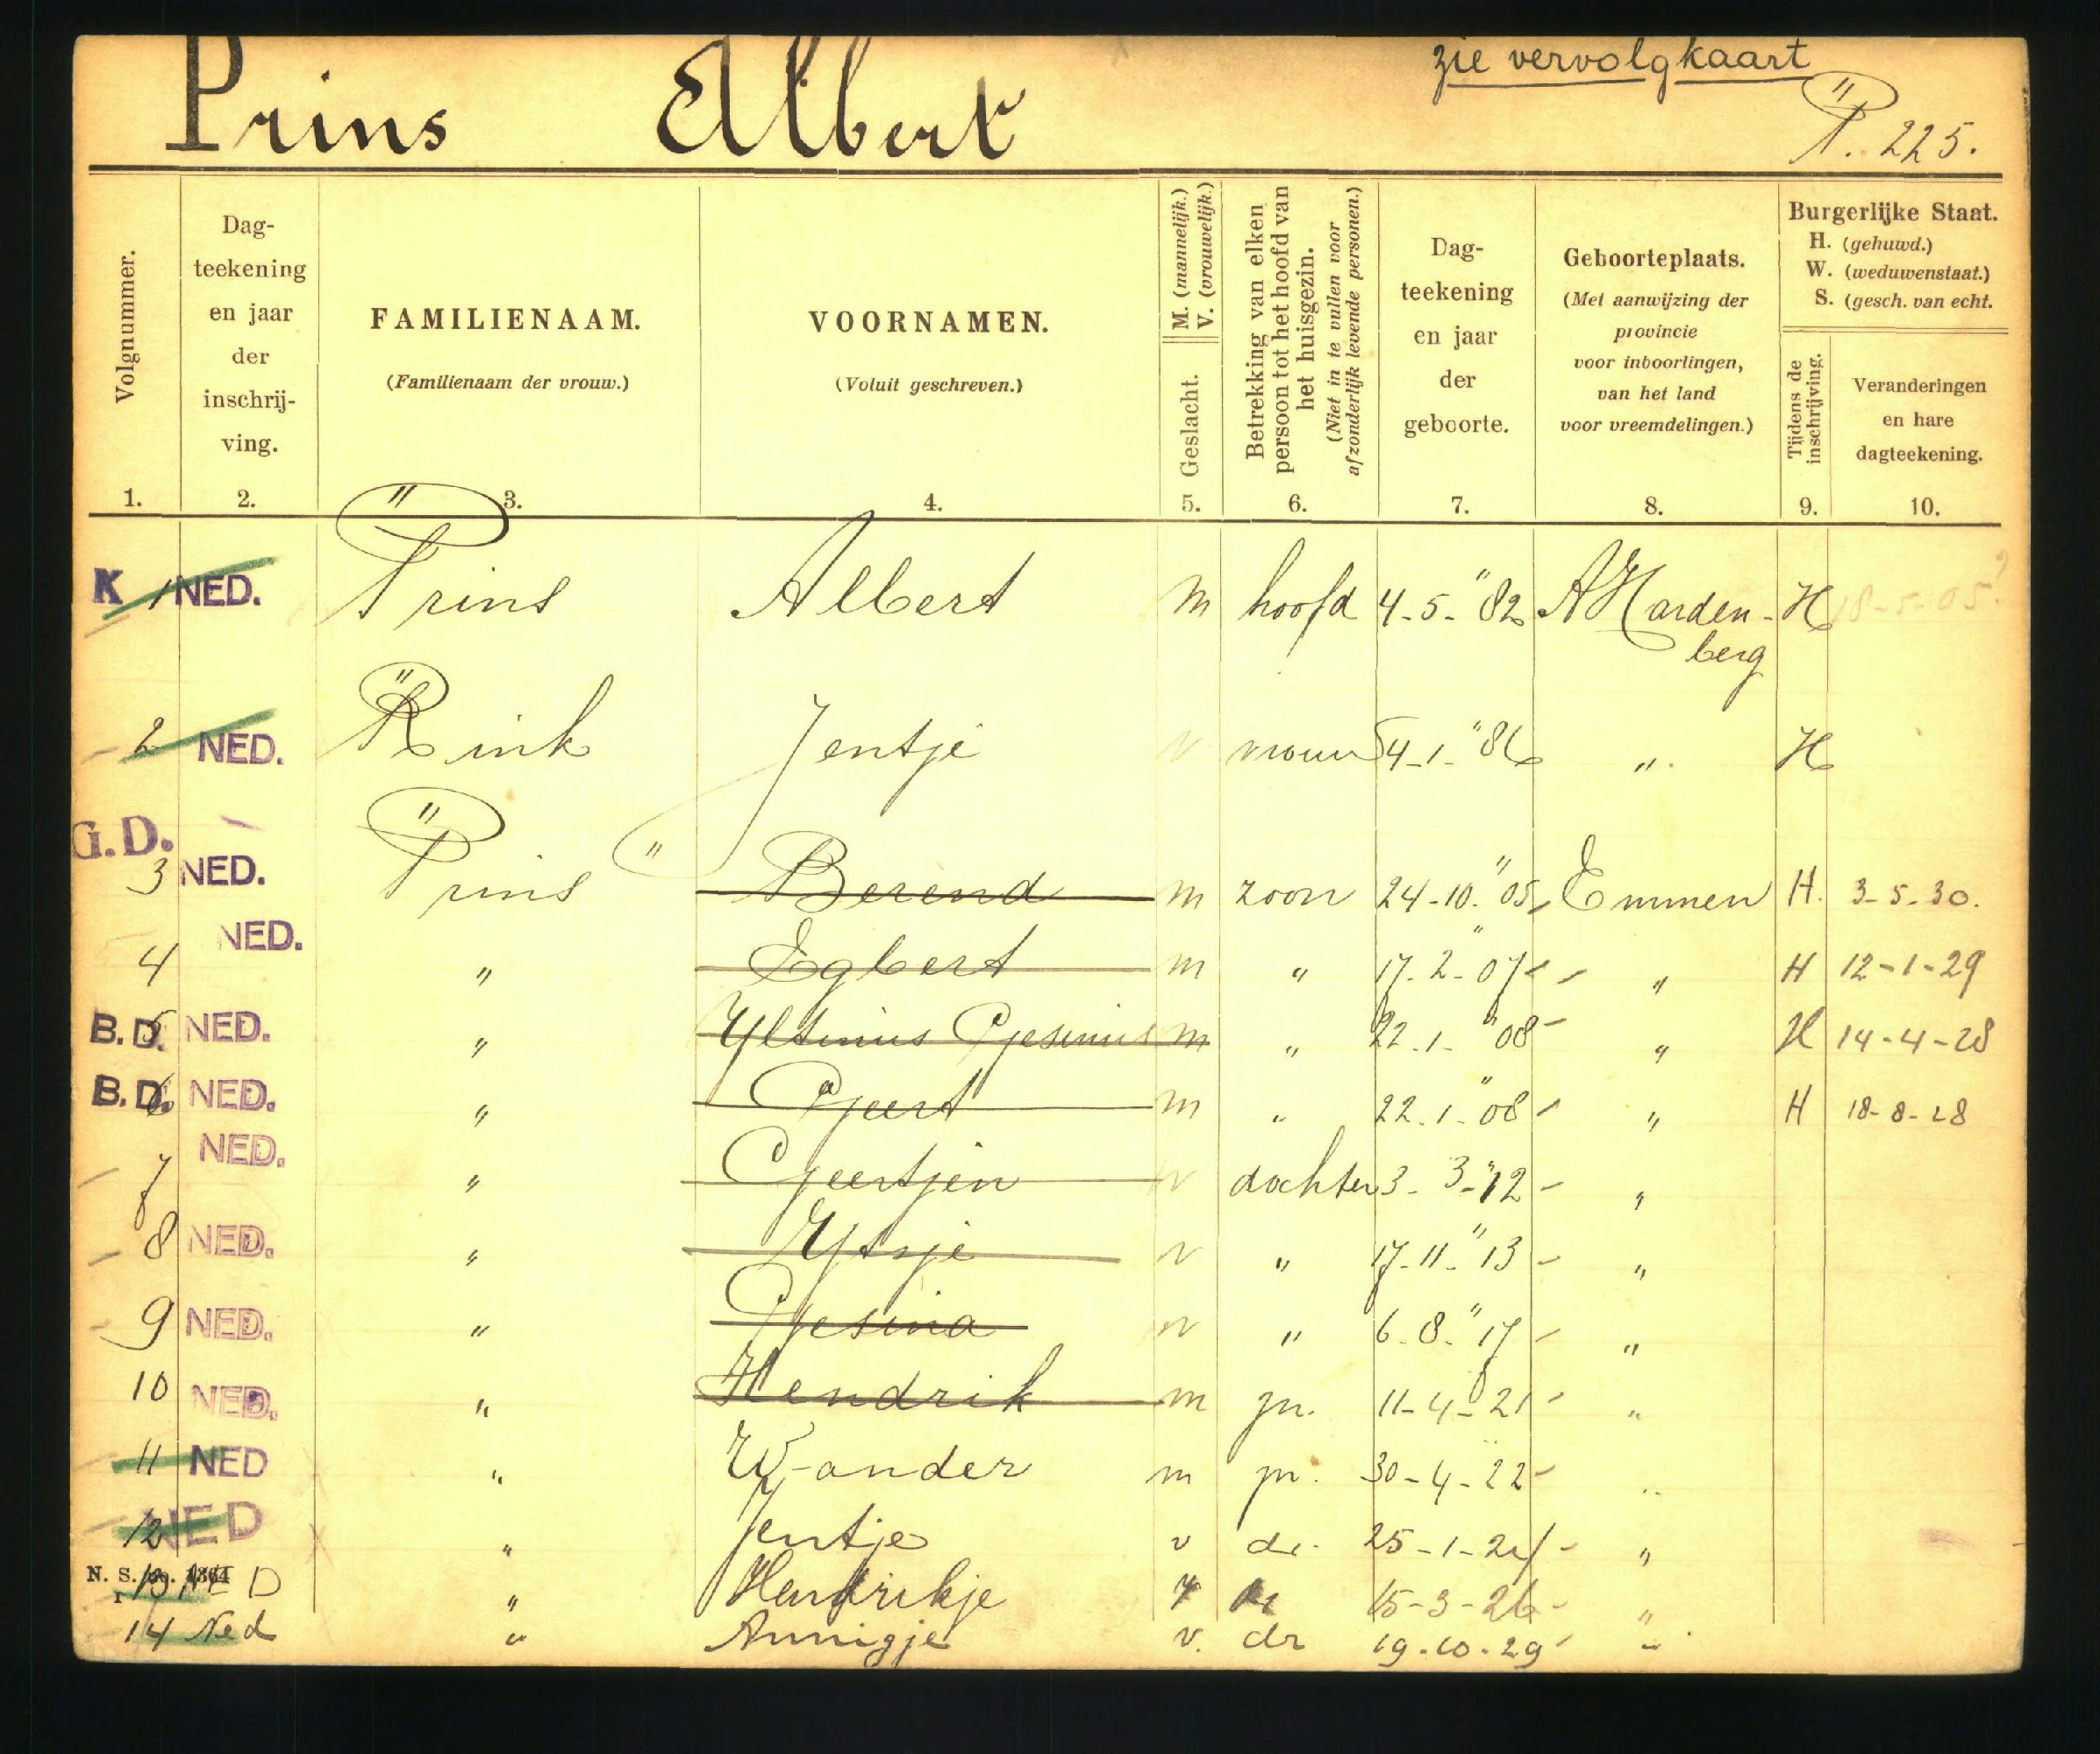 zie vervolgkaart
Prins Albert
P. 225.
Volgnummer.
Dag-
teekening
en jaar
der
inschrij-
ving.
FAMILIENAAM.
(Familienaam der vrouw.)
VOORNAMEN.
(Voluit geschreven.)
M. (mannelijk.)
V. (vrouwelijk.)
Geslacht.
Betrekking van elken
persoon tot het hoofd van
het huisgezin.
(Niet in te vullen voor
afzonderlijk levende personen.)
Dag-
teekening
en jaar
der
geboorte.
Geboorteplaats.
(Met aanwijzing der
provincie
voor inboorlingen,
van het land
voor vreemdelingen.)
Burgerlijke Staat.
H. (gehuwd.)
W. (weduwenstaat.)
S. (gesch. van echt.
Tijdens de
inschrijving.
Veranderingen
en hare
dagteekening.
1. 2. 3. 4. 5. 6. 7. 8. 9. 10.
K 1 NED. Prins Albert m hoofd 4-5-"82 A Harden- H 18-5-05?
berg
2 NED. Rink Jentje v vrouw 4-1-"86 " H
G.D.
3 NED. Prins " Berend m zoon 24-10-"05 Emmen H. 3-5-30.
4 NED. " Egbert m " 17-2-"07 " H 12-1-29
B.D. 5 NED. " m " 22-1-"08 " H 14-4-28
B.D. 6 NED. " Geert m " 22-1-"08 " H 18-8-28
7 NED. " Geertjen v dochter 3-3-"12 "
8 NED. " v " 17-11-"13 "
9 NED. " Gesina v " 6-8-"17 "
10 NED. " Hendrik m zn. 11-4-"21 "
11 NED " m zn. 30-4-22 "
12 NED " Jentje v dr. 25-1-24 "
N. S.
13 NED " Hendrikje v dr 15-3-26 "
14 Ned " Annigje v. dr 19-10-29 "